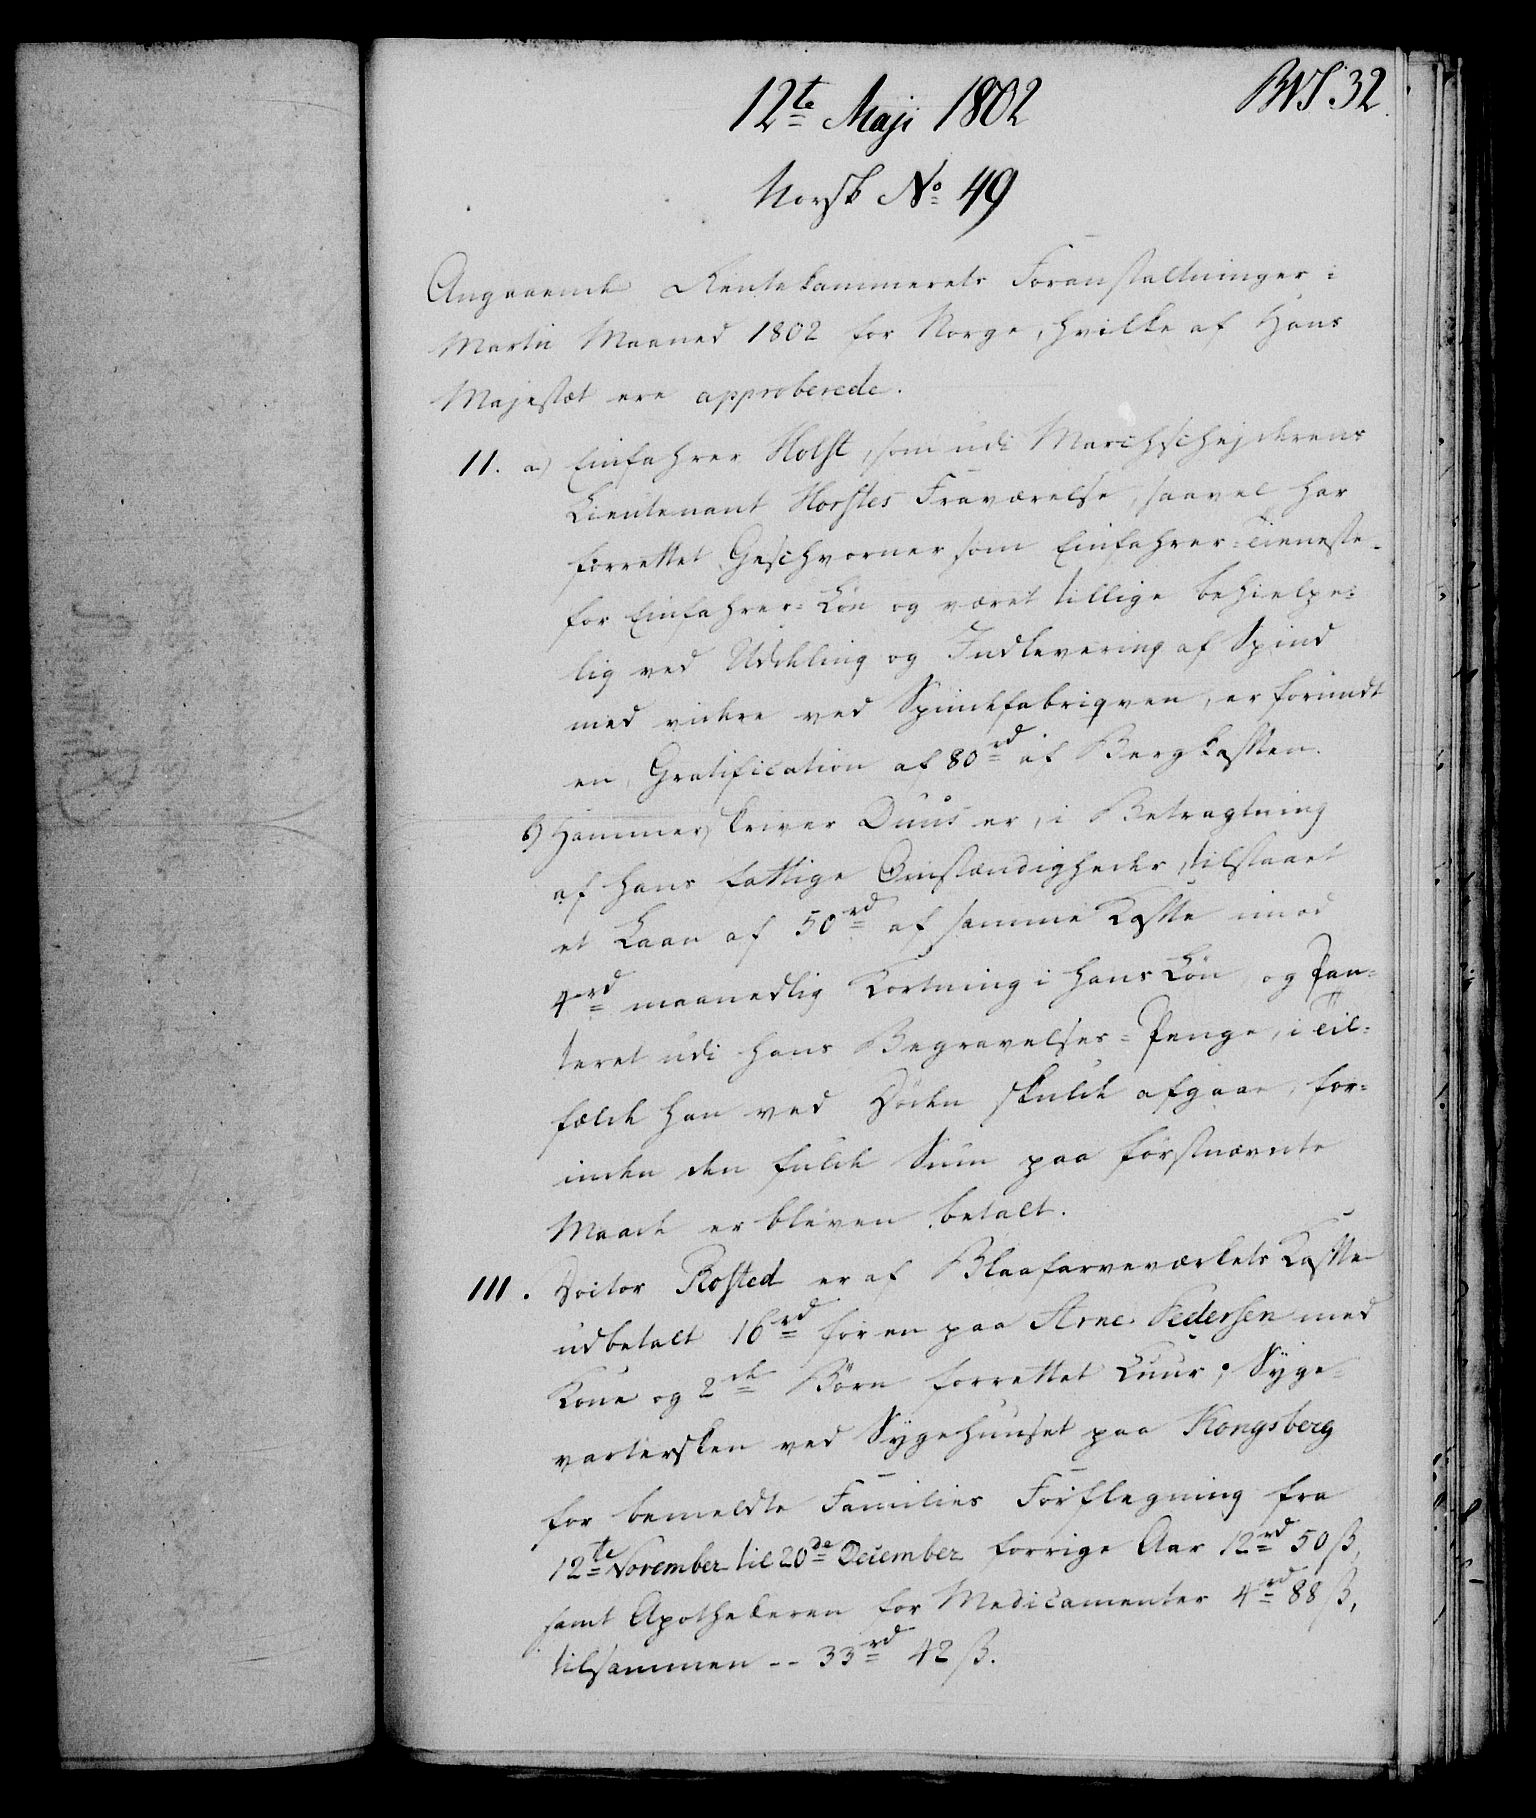 BVS. 32.
12te Maji 1802
Norsk No 49
Angaaende Rentekammerets Foranstaltninger i
Martii Maaned 1802 for Norge, hvilke af Hans
Majestæt ere approberede.
11. a) Einfahrer Holst, som udi Marchschejderens
Lieutenant Horstes Fraværelse, saavel har
forrettet Geschvorner som Einfahrer-Tieneste
for Einfahrer-Løn og været tillige behielpe=
lig ved Uddeling og Indlevering af Spind
med videre ved Spindefabriqven, er forundt
en Gratification af 80 rd af Bergkassen.
b) Hammerskriver Duus er, i Betragtning
af hans fattige Omstændigheder, tilstaaet
et Laan af 50 rd af samme Kasse imod
4 rd maanedlig Kortning i hans Løn og Pan=
teret udi hans Begravelses-Penge, i Til=
fælde han ved Døden skulde afgaae, for=
inden den fulde Sum paa førstnævnte
Maade er bleven betalt.
111. Doctor Rosted er af Blaafarveværkets Kasse
udbetalt 16 rd for en paa Arne Pedersen med
Kone og 2de Børn forrettet Cuur; Syge=
vartersken ved Sygehuuset paa Kongsberg
for bemeldte Families Forflegning fra
12te November til 20de December forrige Aar 12 rd 50 ß,
samt Apothekeren for Medicamenter 4 rd 88 ß,
tilsammen -- 33 rd 42 ß.